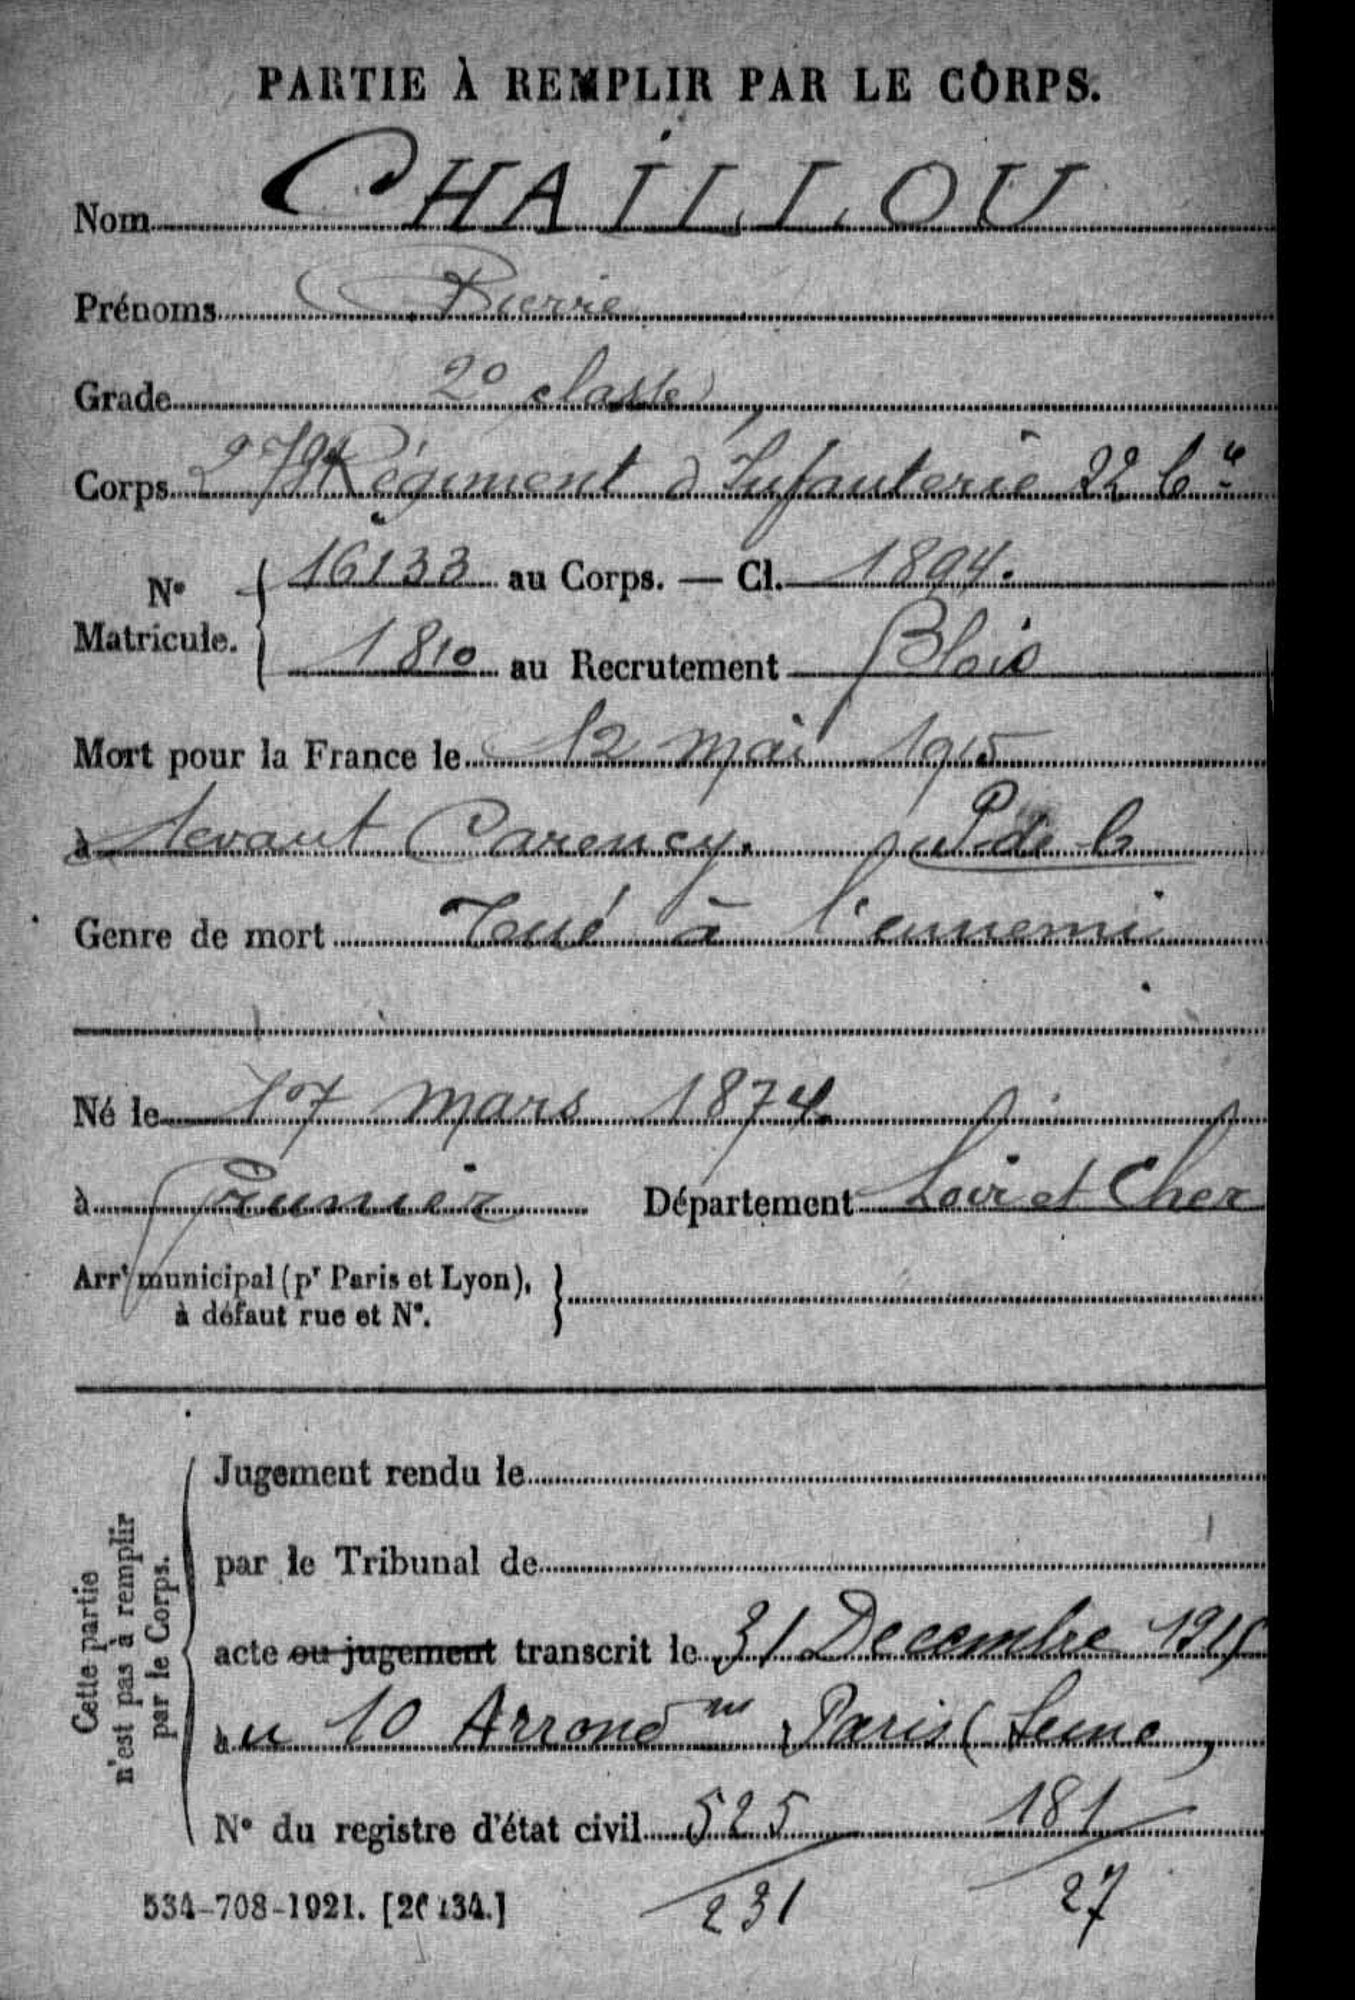 PARTIE À REMPLIR PAR LE CORPS.
Nom CHAILLOU
Prénoms Pierre
Grade 2e classe
Corps 279e Régiment d'Infanterie 22 Cie
N° Matricule. 16133 au Corps. — Cl. 1894.
1810 au Recrutement Blois
Mort pour la France le 12 mai 1915
à devant Carency. P de C
Genre de mort Tué à l'ennemi
Né le 17 mars 1874
à Prunier Département Loir et Cher
Arrt municipal (pr Paris et Lyon),
à défaut rue et N°.
Cette partie
n'est pas à remplir
par le Corps.
Jugement rendu le
par le Tribunal de
acte ou jugement transcrit le 31 Decembre 1915
au 10 Arrondm Paris (Seine)
N° du registre d'état civil 525 181
231 27
534-708-1921. [26134.]